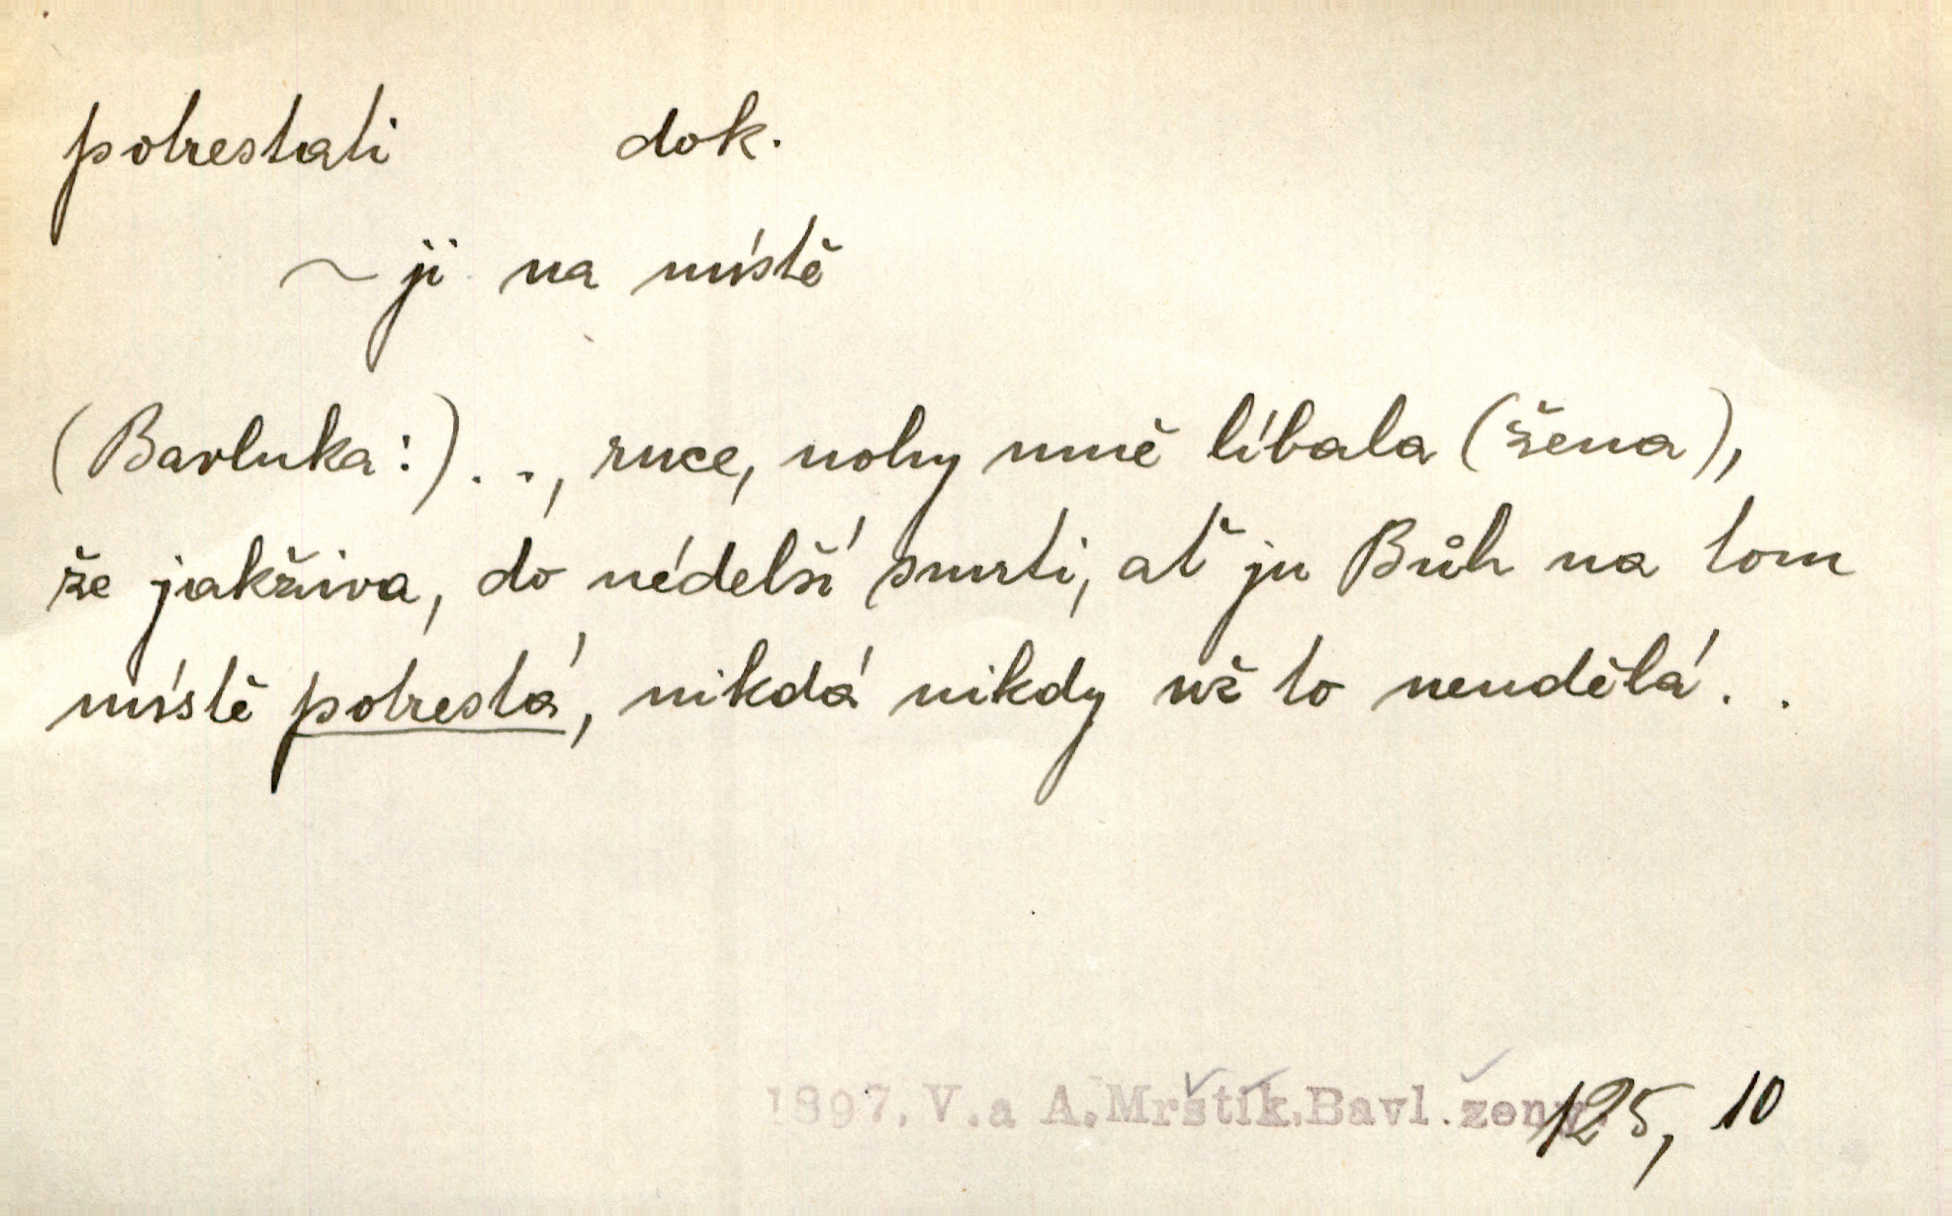 potrestati dok.
~ ji na místě
(Bavluka:) . . , ruce, nohy mně líbala (žena),
že jakživa, do nédelší smrti, ať ju Bůh na tom
místě potrestá, nikdá nikdy už to neudělá . .
1897, V. a A. Mrštík, Bavl. ženy 125, 10